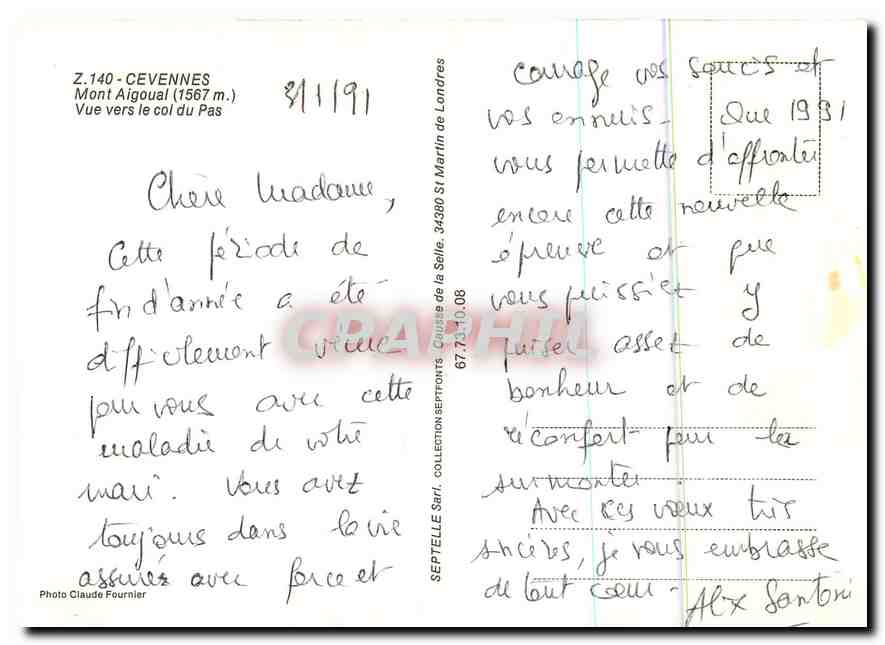 Z.140 - CEVENNES
Mont Aigoual (1567 m.)
Vue vers le col du Pas
3/1/91
Chère Madame,
Cette période de
fin d'année a été
difficilement vécue
pour vous avec cette
maladie de votre
mari. Vous avez
toujours dans la vie
assumée avec force et
Photo Claude Fournier
SEPTELLE Sarl. COLLECTION SEPTFONTS Causse de la Selle. 34380 St Martin de Londres
67.73.10.08
CPAPHIL
courage vos soucis et
vos ennuis. Que 1991
vous permette d'affronter
encore cette nouvelle
épreuve et que
vous puissiez y
puiser assez de
bonheur et de
réconfort pour la
surmonter.
Avec ces vœux très
sincères, je vous embrasse
de tout cœur -
Alix Santoni